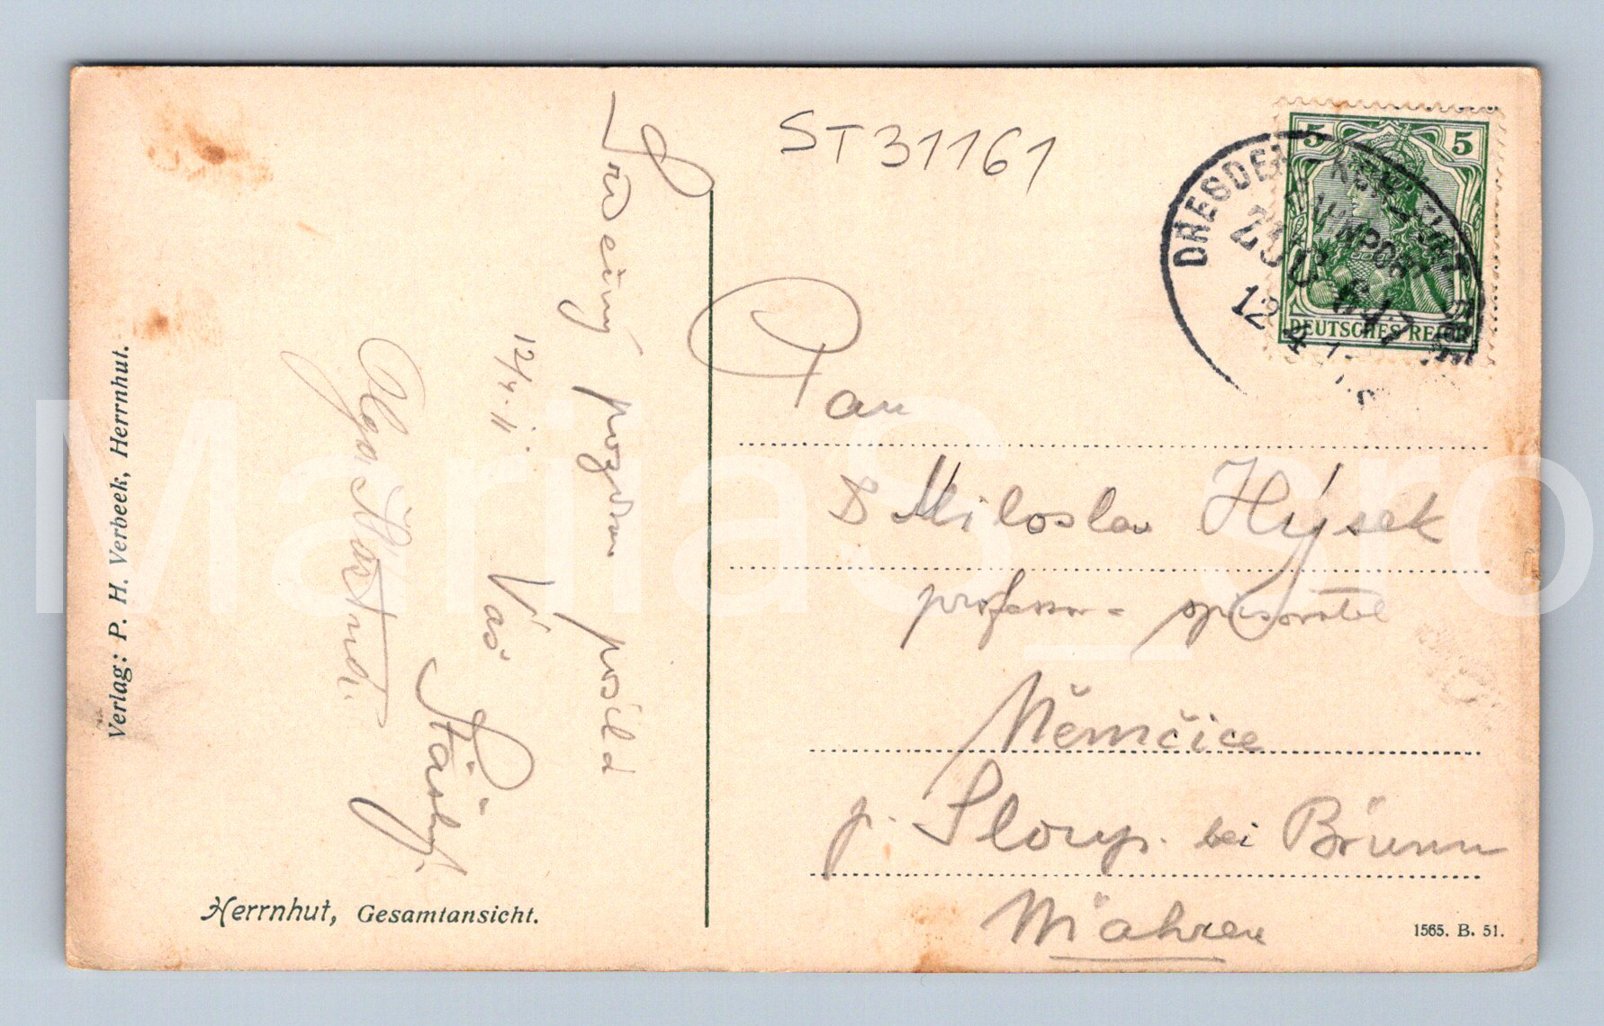 ST31161
DRESDEN
ZUG
12 4
5 5
DEUTSCHES REICH
Pan
Dr Miloslav Hýsek
professor - spisovatel
Němčice
p. Sloup. bei Brünn
Mähren
1565. B. 51.
Srdečný pozdrav posílá
12/4. 11.
Váš
Olga
Herrnhut, Gesamtansicht.
Verlag: P. H. Verbeek, Herrnhut.
MariiaS_pro